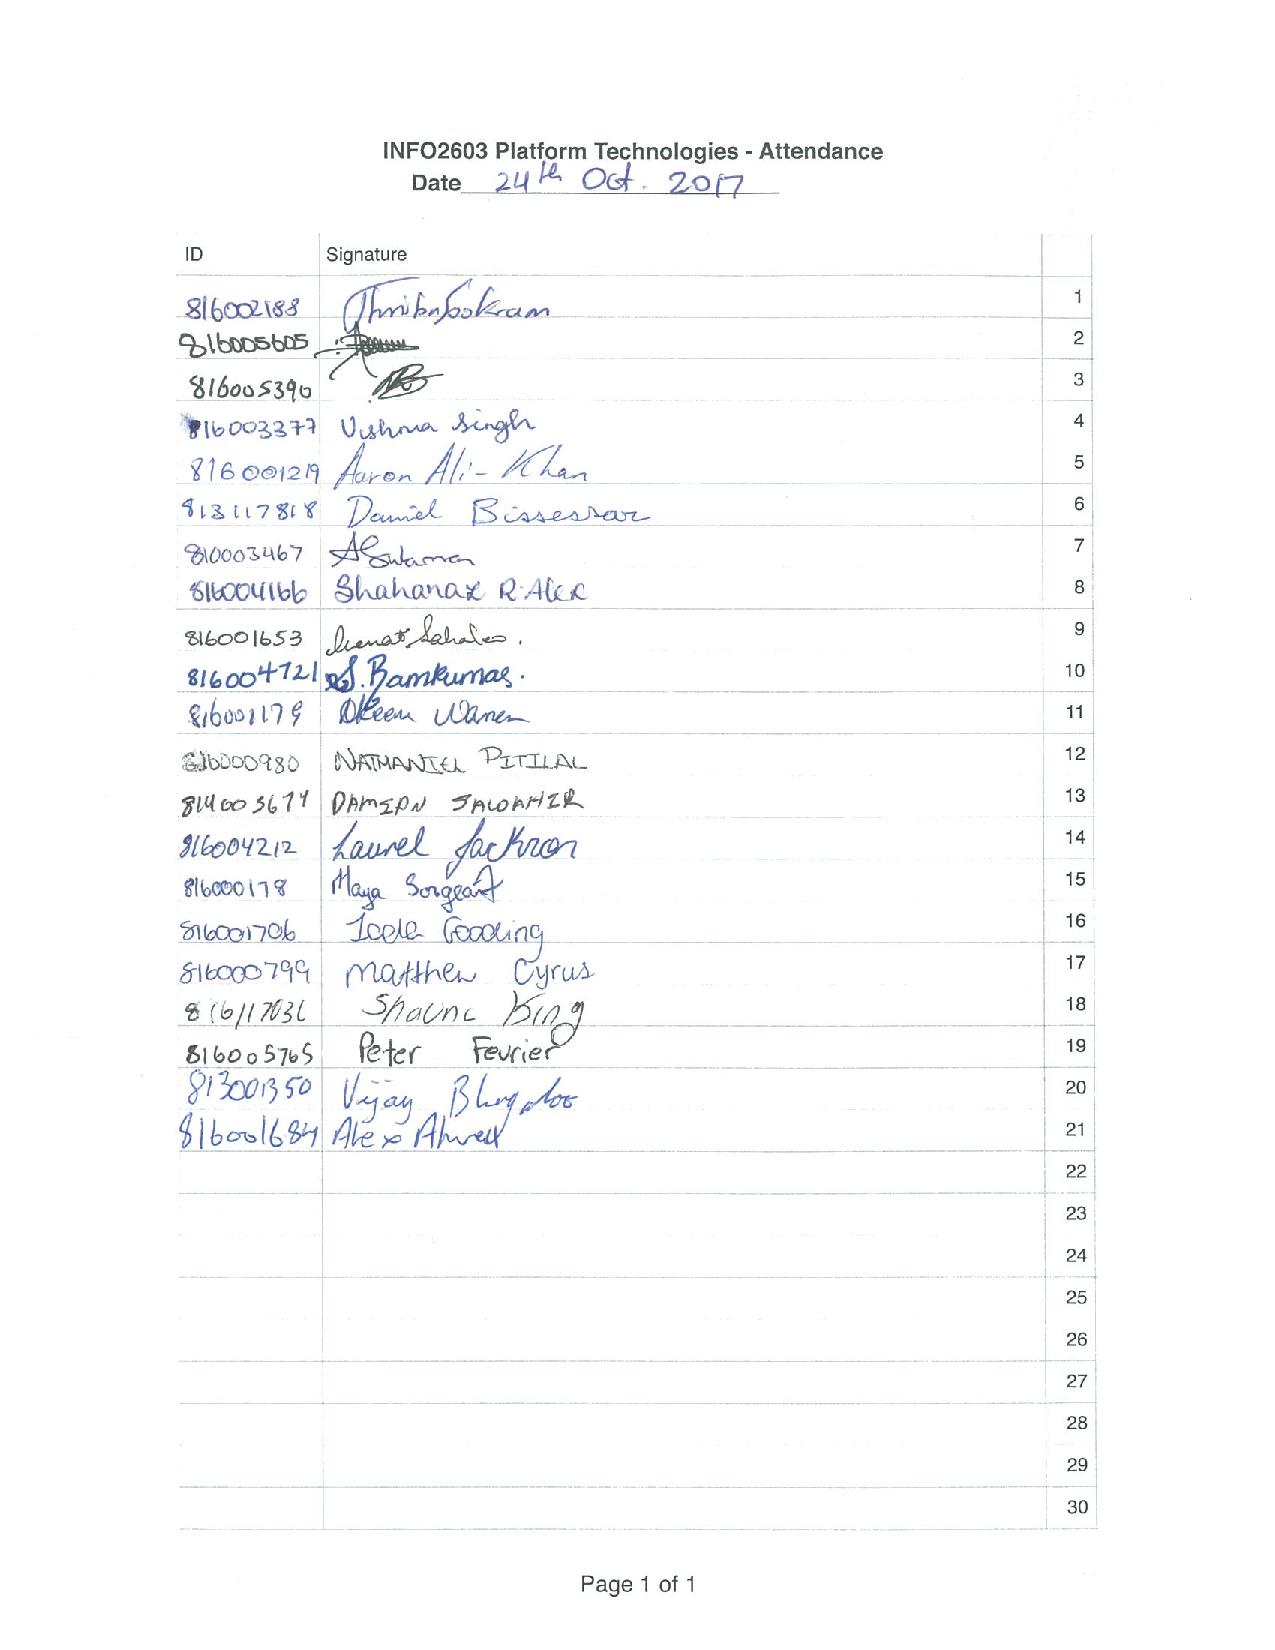 INFO2603 Platform Technologies - Attendance
Date 24th Oct. 2017
ID Signature
816002188 1
816005605 2
816005390 3
816003377 Vishma Singh 4
816001219 Aaron Ali-Khan 5
813117818 Daniel Bissessar 6
810003467 7
816004166 Shahanaz R. 8
816001653 9
816004721 S. Ramkumar. 10
816001179 Akeem Warner 11
816000980 NATHANIEL PITILAL 12
814003674 DAMION JALOAHIR 13
816004212 Laurel Jackson 14
816000178 Maya Sorgeant 15
816001706 Gooding 16
816000799 Matthew Cyrus 17
King 18
816005765 Peter Fevrier 19
Vijay 20
816001684 Alex 21
22
23
24
25
26
27
28
29
30
Page 1 of 1